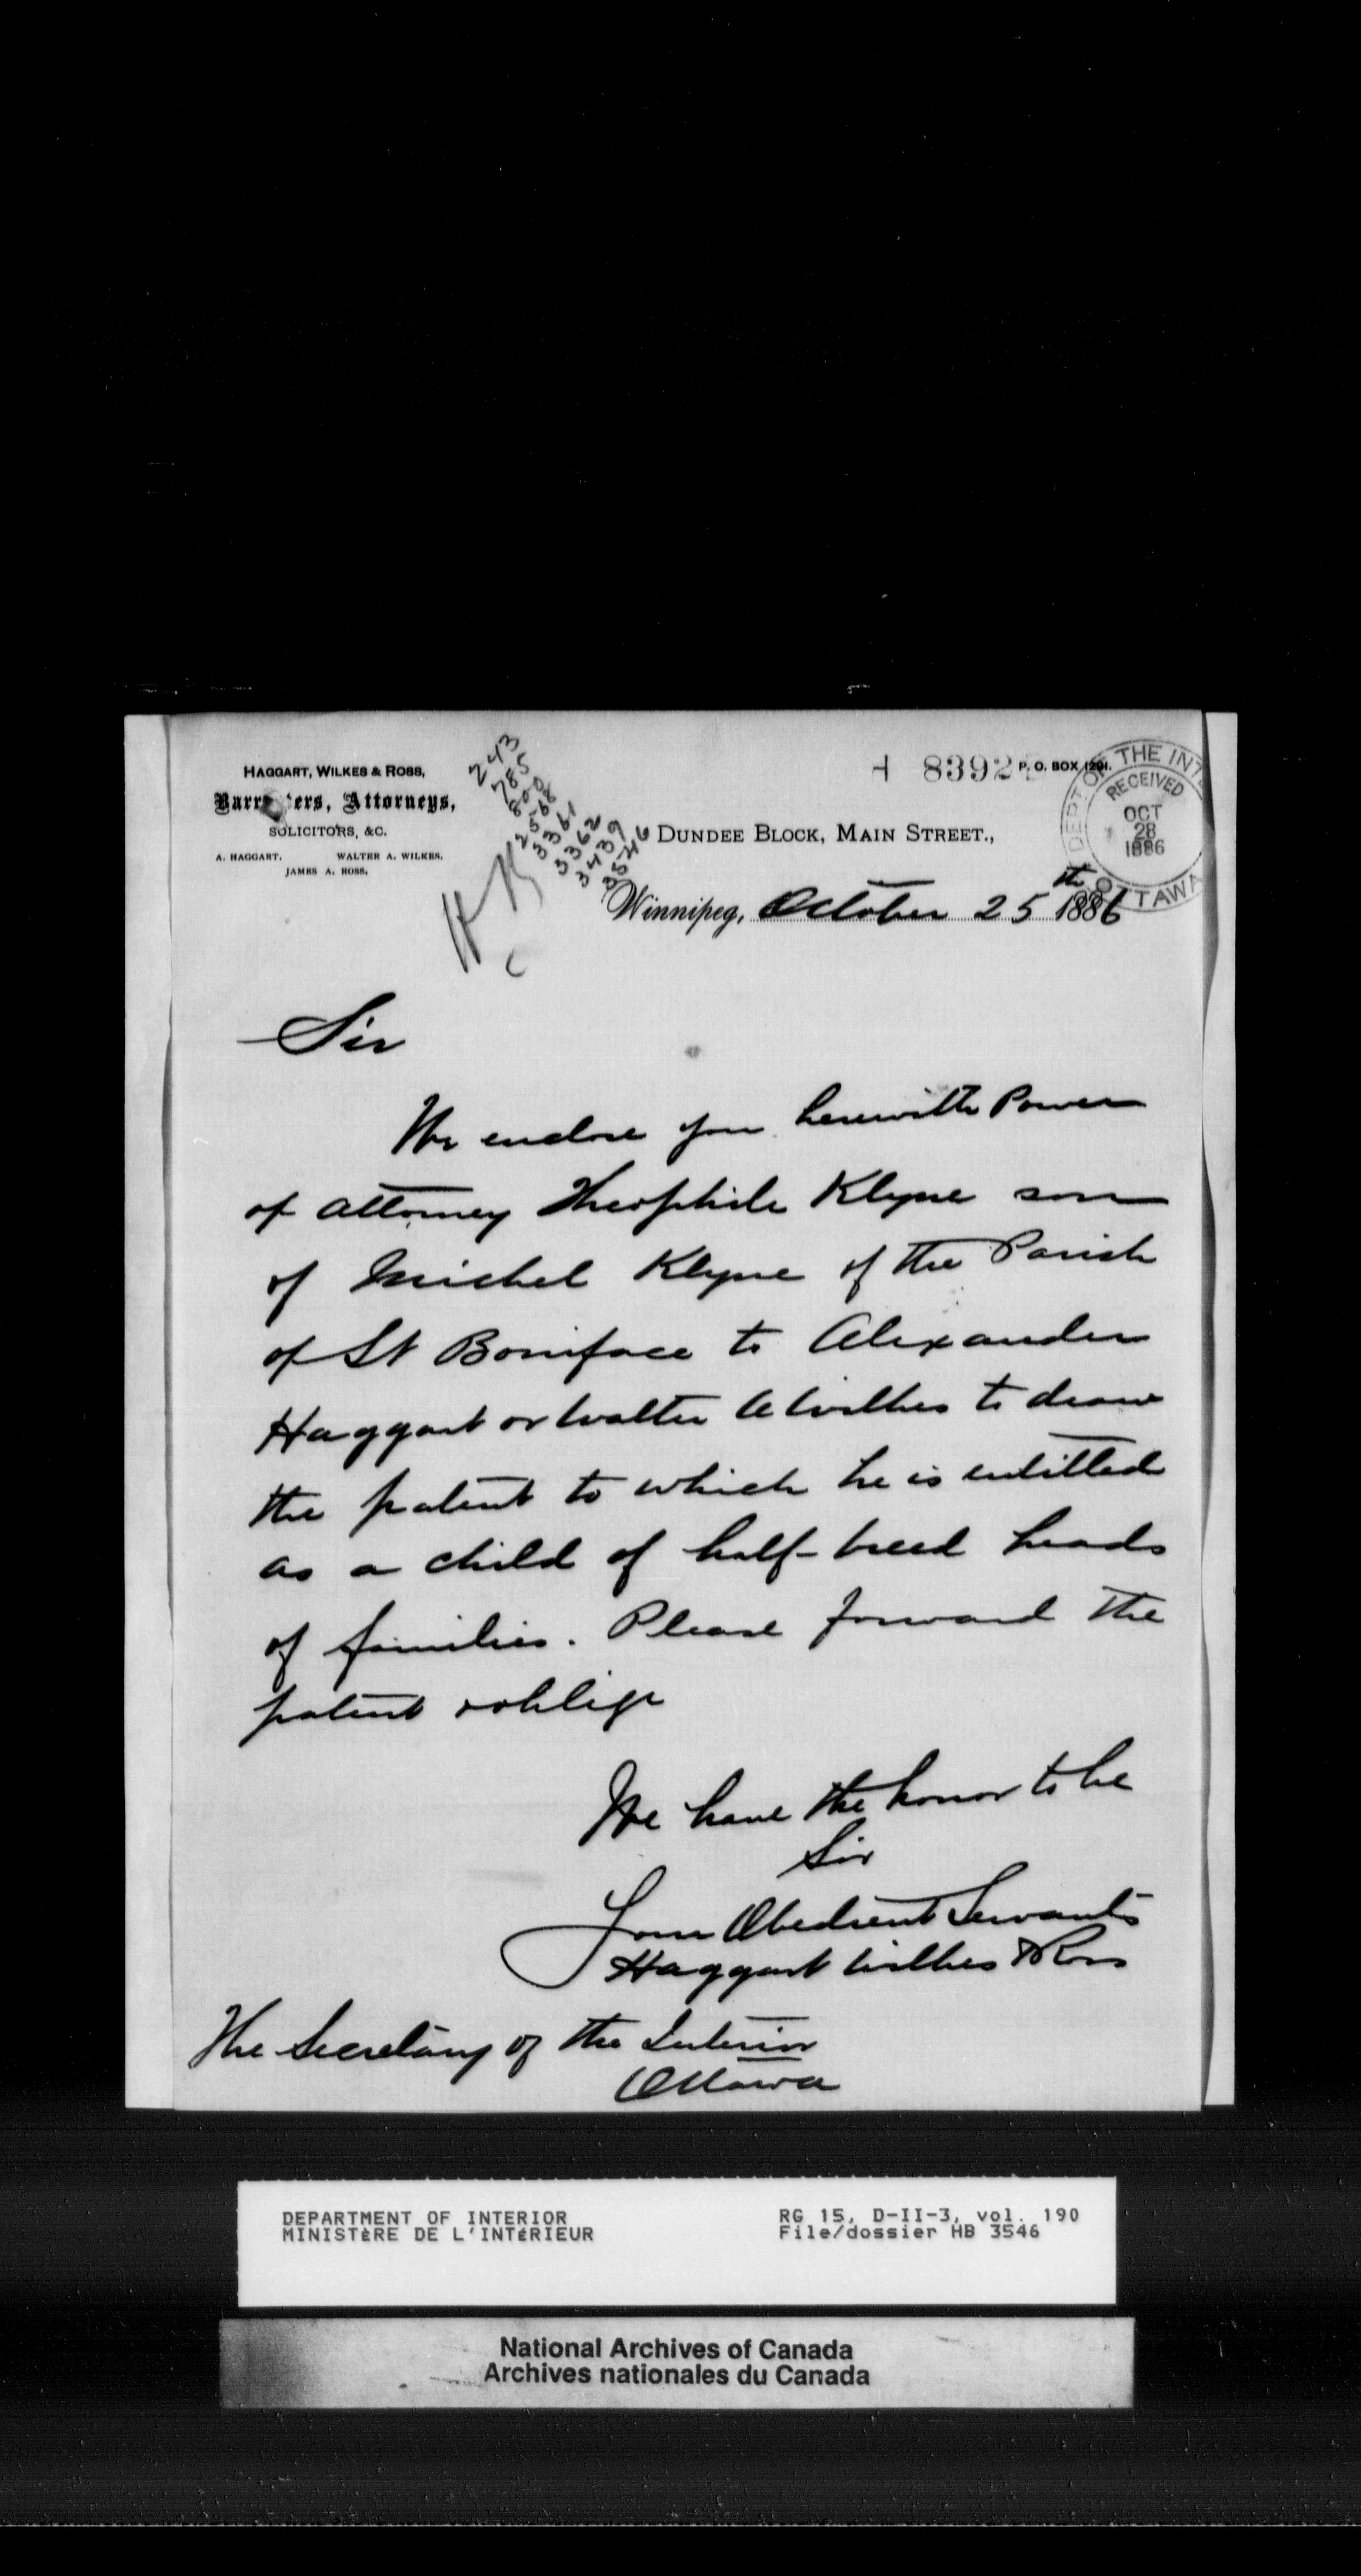 HAGGART, WILKES & ROSS,
Barristers, Attorneys,
SOLICITORS, &C.
A. HAGGART. WALTER A. WILKES.
JAMES A. ROSS.
243
785
3361
3362
3439
3546
HB
83924
P. O. BOX 1291.
DEPT OF THE INT
RECEIVED
OCT
28
1886
OTTAWA
DUNDEE BLOCK, MAIN STREET.,
Winnipeg, October 25th 1886
Sir
We enclose you herewith Power
of attorney Theophile Klyne son
of Michel Klyne of the Parish
of St Boniface to Alexander
Haggart or Walter A Wilkes to draw
the patent to which he is entitled
as a child of half-breed heads
of families. Please forward the
patent & oblige
We have the honor to be
Sir
Your Obedient Servants
Haggart Wilkes & Ross
The Secretary of the Interior
Ottawa
DEPARTMENT OF INTERIOR
MINISTÈRE DE L'INTÉRIEUR
RG 15, D-II-3, vol. 190
File/dossier HB 3546
National Archives of Canada
Archives nationales du Canada